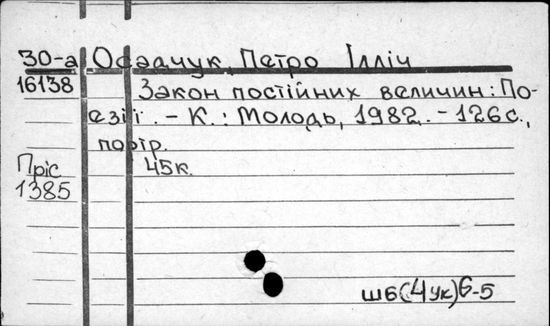 30-а Осадчук, Петро Ілліч
16138 Закон постійних величин: По-
езії. - К.: Молодь, 1982. - 126 с.,
портр.
Пріс 45к.
1385
Ш6(4Ук)6-5